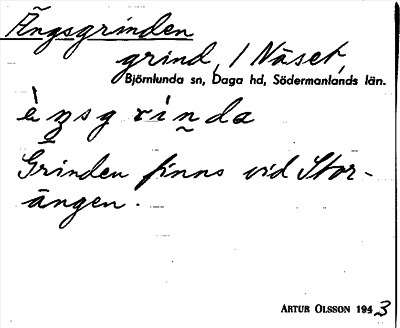 Ängsgrinden
grind, / Näset,
Björnlunda sn, Daga hd, Södermanlands län.
è̀ŋsgrìnda
Grinden finns vid Stor-
ängen.
ARTUR OLSSON 1943